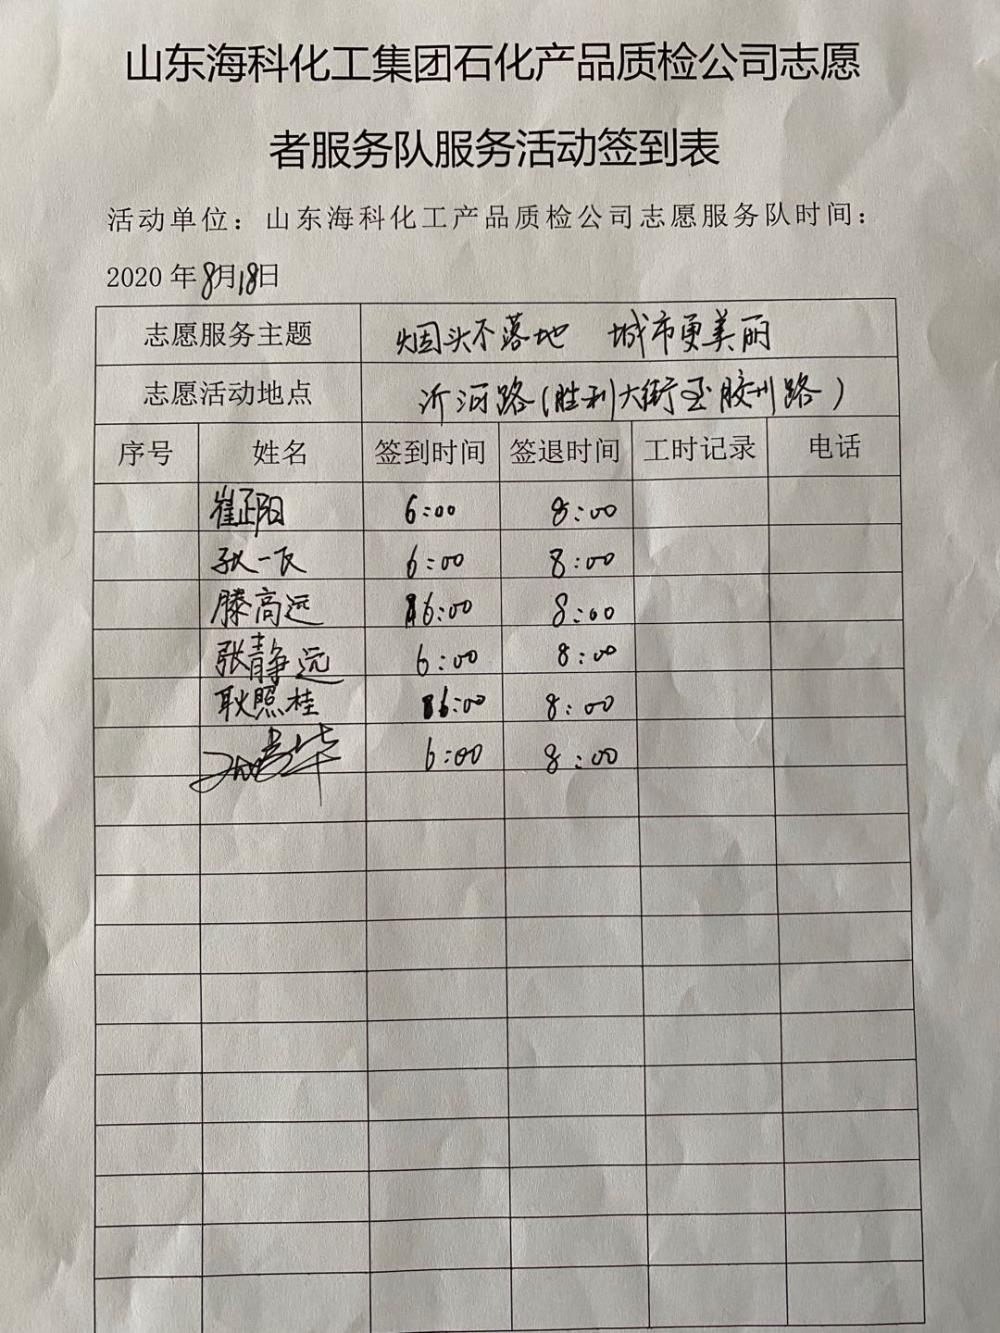 山东海科化工集团石化产品质检公司志愿
者服务队服务活动签到表
活动单位：山东海科化工产品质检公司志愿服务队时间：
2020年8月18日
志愿服务主题 烟头不落地 城市更美丽
志愿活动地点 沂河路(胜利大街至胶州路)
序号 姓名 签到时间 签退时间 工时记录 电话
崔正阳 6:00 8:00
6:00 8:00
滕高远 6:00 8:00
张静远 6:00 8:00
耿照桂 6:00 8:00
6:00 8:00